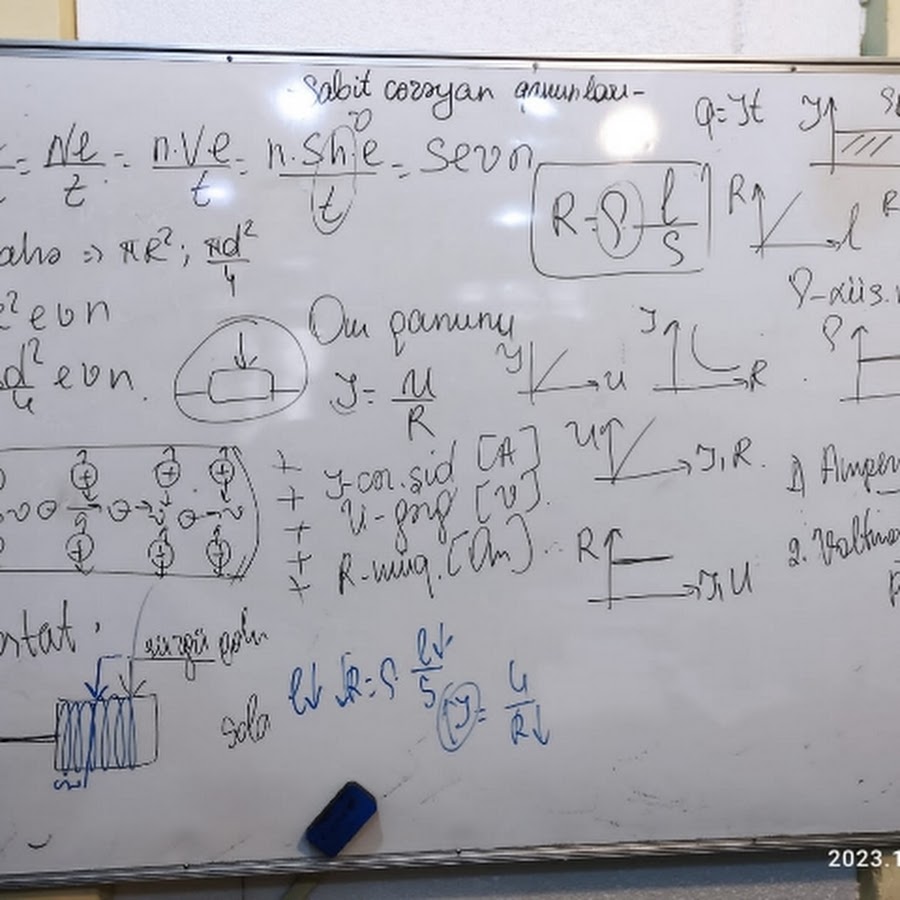 -Sabit cərəyan qanunları-
q=It
I
= Ne/t = n.Ve/t = n.Sh.e/t = Sevn
υ
R=ρ l/S
R
l
R
=> πR²; πd²/4
² eυn
d²/4 eυn.
Om qanunu
I= U/R
I
U
I
R
ρ
U
I,R.
+ I-cər.şid [A]
+ U-gərg [V].
+ R-müq. [Om]
+
+
R
I,U
1) Amper
2. Voltm
sürgü qolu
sola l↓ ↓R=ρ l↓/S
↑I= U/R↓
2023.1